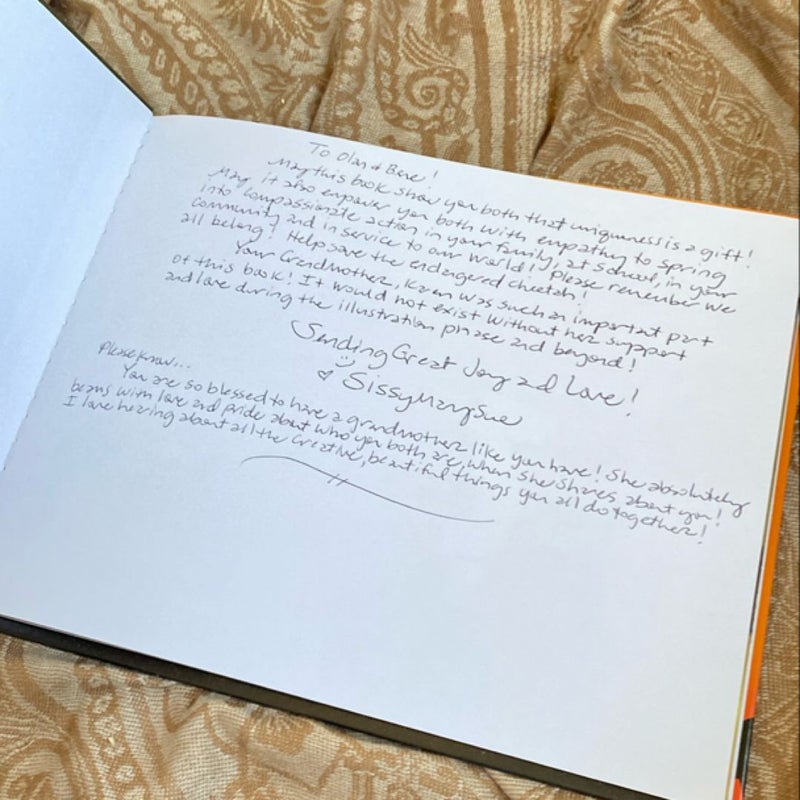 To Olan & Bene!
May this book show you both that uniqueness is a gift!
May it also empower you both with empathy to spring
into compassionate action in your family, at school, in your
community and in service to our world! Please remember we
all belong! Help save the endangered cheetah!
Your Grandmother, Karen was such an important part
of this book! It would not exist without her support
and love during the illustration phase and beyond!
Sending Great Joy and Love!
SissyMarySue
Please know...
You are so blessed to have a grandmother like you have! She absolutely
beams with love and pride about who you both are, when she shares about you!
I love hearing about all the creative, beautiful things you all do together!